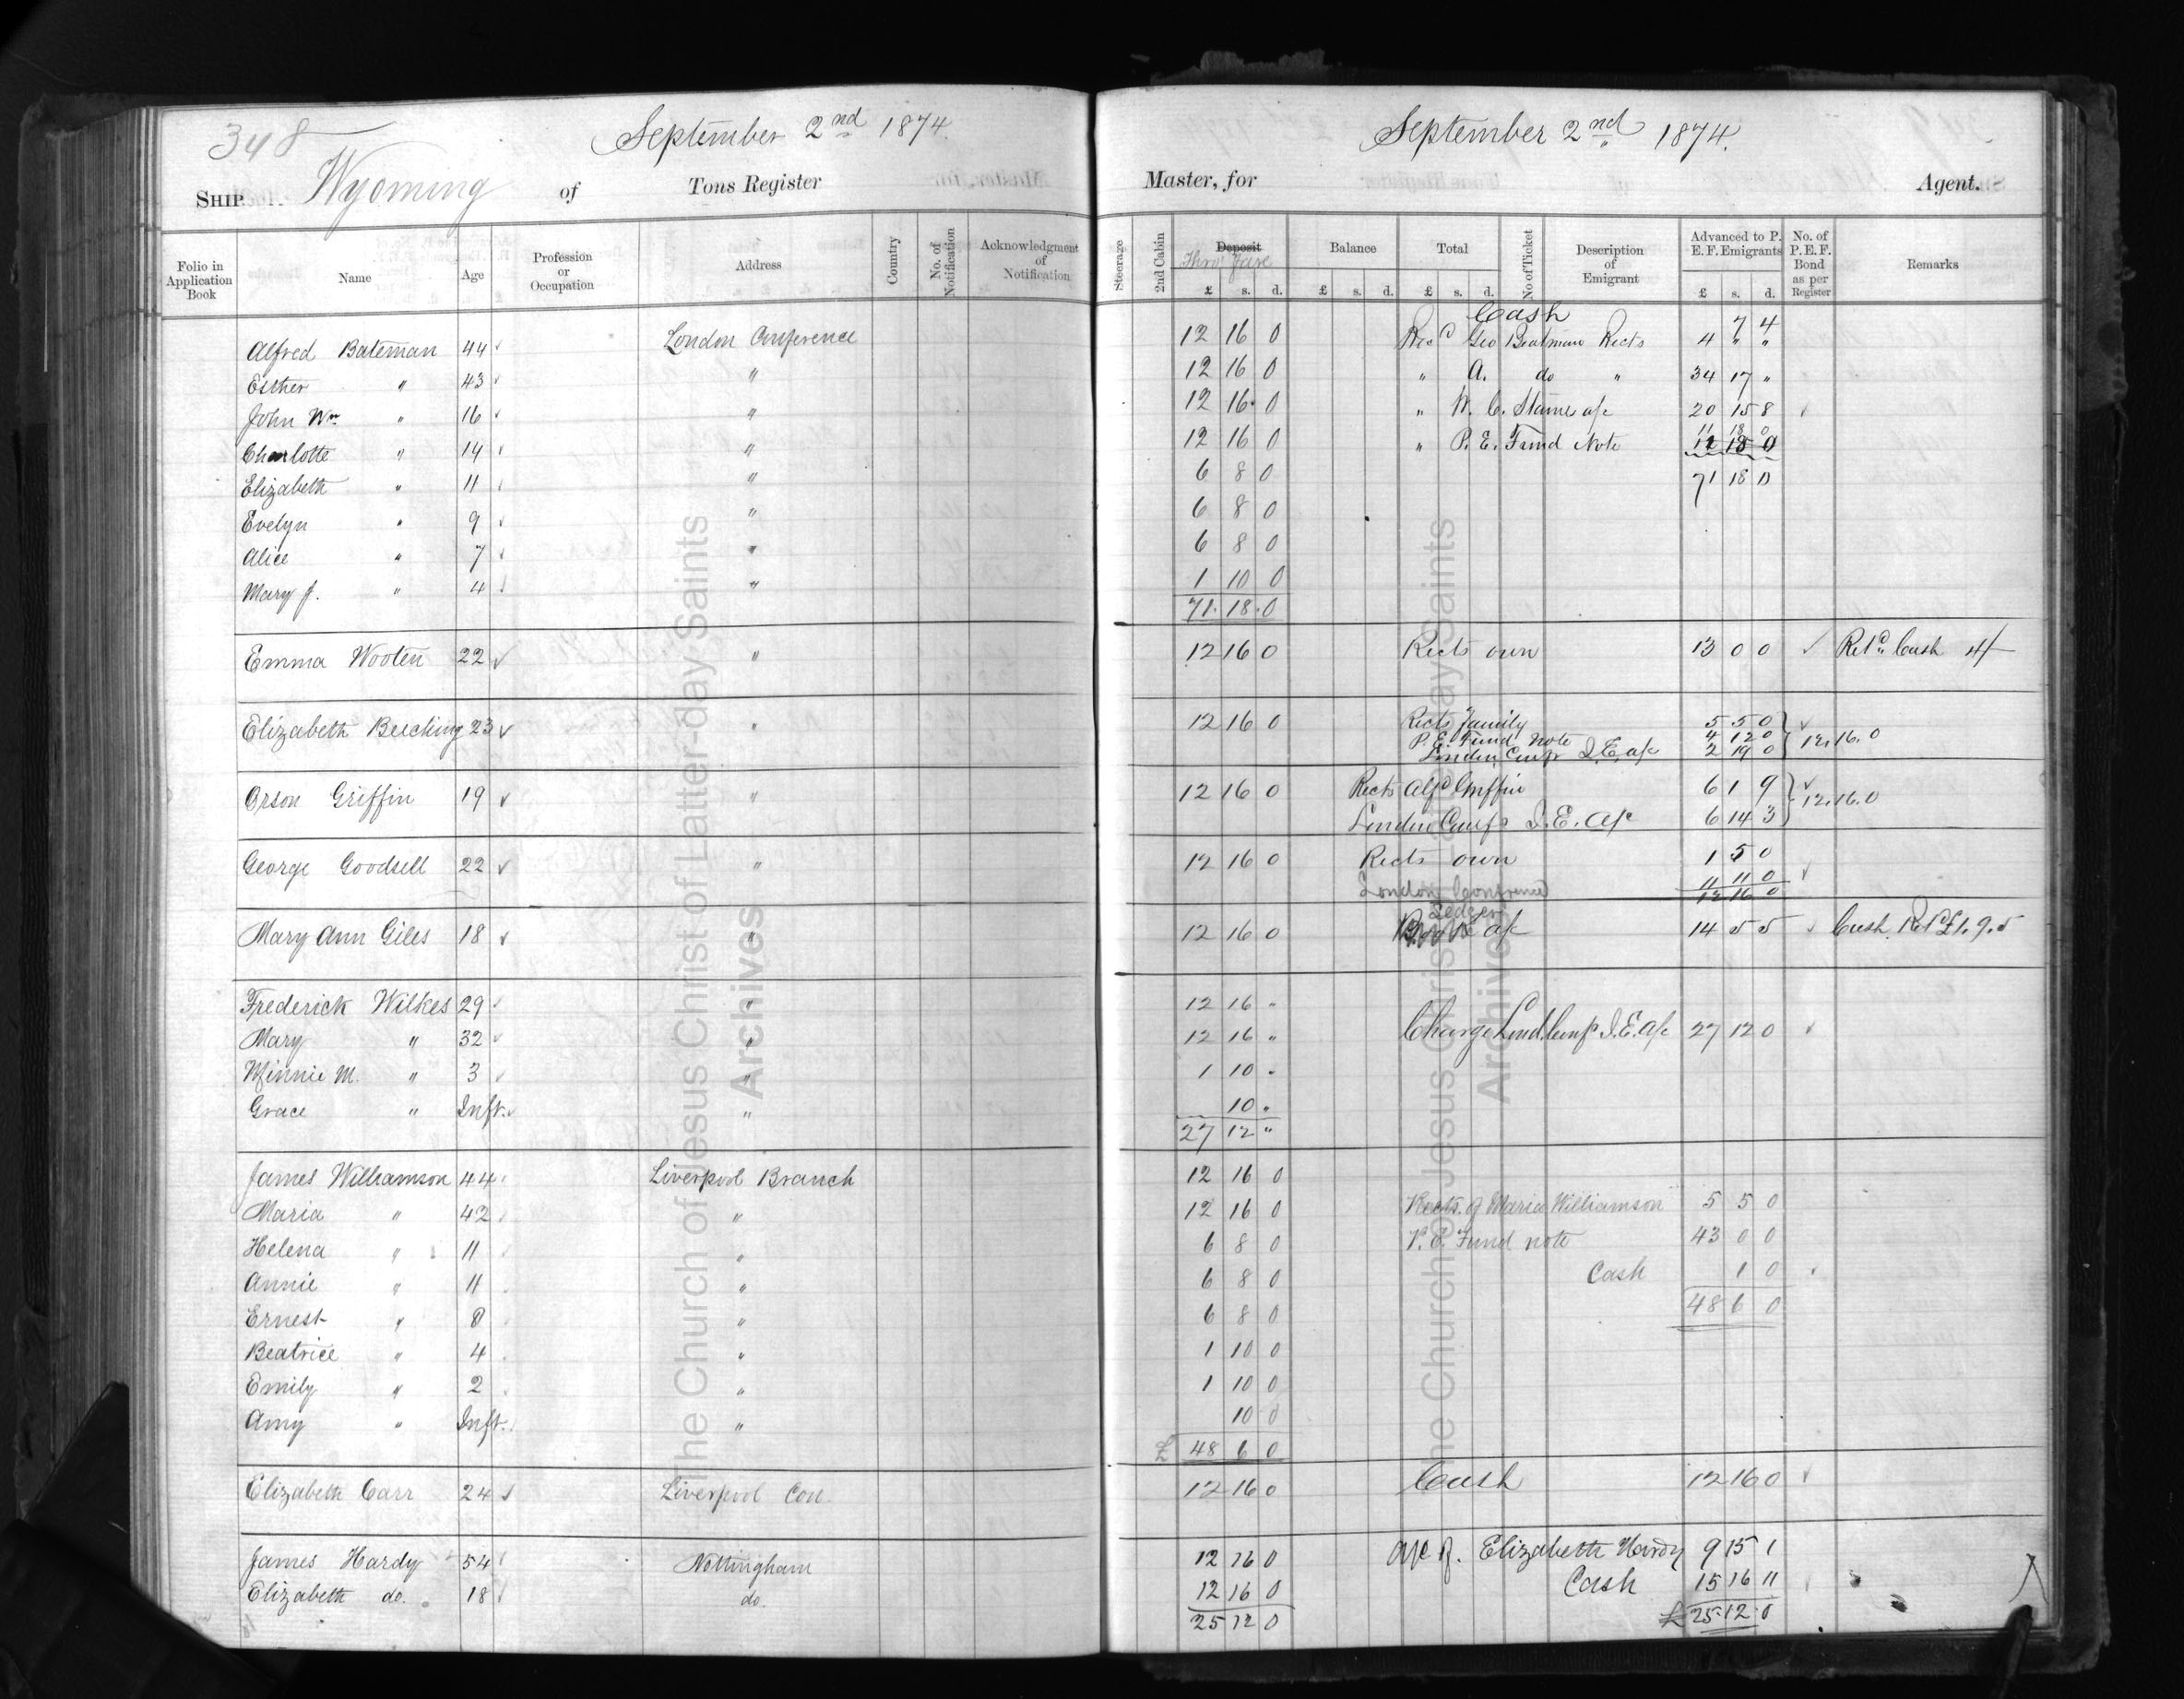 348
September 2nd 1874.
SHIP Wyoming of Tons Register
Folio in Application Book Name Age Profession or Occupation Address Country No. of Notification Acknowledgment of Notification
Alfred Bateman 44 London Conference
Esther " 43 "
John Wm " 16 "
Charlotte " 14 "
Elizabeth " 11 "
Evelyn " 9 "
Alice " 7 "
Mary J. " 4 "
Emma Wooten 22 "
Elizabeth Beeching 23 "
Orson Griffin 19 "
George Goodsell 22 "
Mary Ann Giles 18 "
Frederick Wilkes 29 "
Mary " 32 "
Minnie M. " 3 "
Grace " Inft. "
James Williamson 44 Liverpool Branch
Maria " 42 "
Helena " 11 "
Annie " 11 "
Ernest " 8 "
Beatrice " 4 "
Emily " 2 "
Amy " Inft. "
Elizabeth Carr 24 Liverpool Con
James Hardy 54 Nottingham
Elizabeth do. 18 do.
The Church of Jesus Christ of Latter-day Saints
Archives
September 2nd 1874.
Master, for Agent.
Steerage 2nd Cabin Deposit Balance Total No of Ticket Description of Emigrant Advanced to P. E. F. Emigrants No. of P. E. F. Bond as per Register Remarks
Thro' Fare
£ s. d. £ s. d. £ s. d. £ s. d.
Cash 7 4
12 16 0 Recd Geo Bateman Rects 4 " "
12 16 0 " A. do " 34 17 "
12 16 0 " W. C. Staines a/c 20 15 8
11 18 0
12 16 0 " P. E. Fund Note 12 18 0
6 8 0 71 18 0
6 8 0
6 8 0
1 10 0
71 18 0
12 16 0 Rects own 13 0 0 Retd Cash 4/
12 16 0 Rects family 5 5 0
P. E. Fund Note 4 12 0 12.16.0
London Conf I.E. a/c 2 19 0
12 16 0 Rects Alfd Griffin 6 1 9 12.16.0
London Conf I.E. a/c 6 14 3
12 16 0 Rects own 1 5 0
London Conference 11 11 0
12 16 0
Ledger
12 16 0 a/c 14 5 5 Cash Retd £1.9.5
12 16 "
12 16 " Charge Lond. Conf I.E. a/c 27 12 0
1 10 "
10 "
27 12 "
12 16 0
12 16 0 Rects. of Maria Williamson 5 5 0
6 8 0 P. E. Fund note 43 0 0
6 8 0 Cash 1 0
6 8 0 48 6 0
1 10 0
1 10 0
10 0
£ 48 6 0
12 16 0 Cash 12 16 0
12 16 0 a/c of. Elizabeth Hardy 9 15 1
12 16 0 Cash 15 16 11
25 12 0 £ 25 12 0
The Church of Jesus Christ of Latter-day Saints
Archives